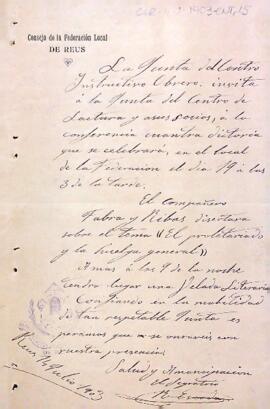 C.L.R. 1903 ENT, 15
Consejo de la Federación Local
DE REUS
La Junta del Centro
Instructivo Obrero, invita
á la Junta del Centro de
Lectura y á sus socios, á la
conferencia
que se celebrará, en el local
de la Federacion el dia 19 á las
3 de la tarde.
El compañero
Fabra y Ribas disertara
sobre el tema "El proletariado
y la huelga general"
Á mas á las 9 de la noche
tendra lugar una Velada Literaria
Confiando en la
de tan respetable Junta es
peramos que se onrareis con
vuestra presencia.
Salud y Emancipacion
el Secretario
Reus 14 Julio 1903